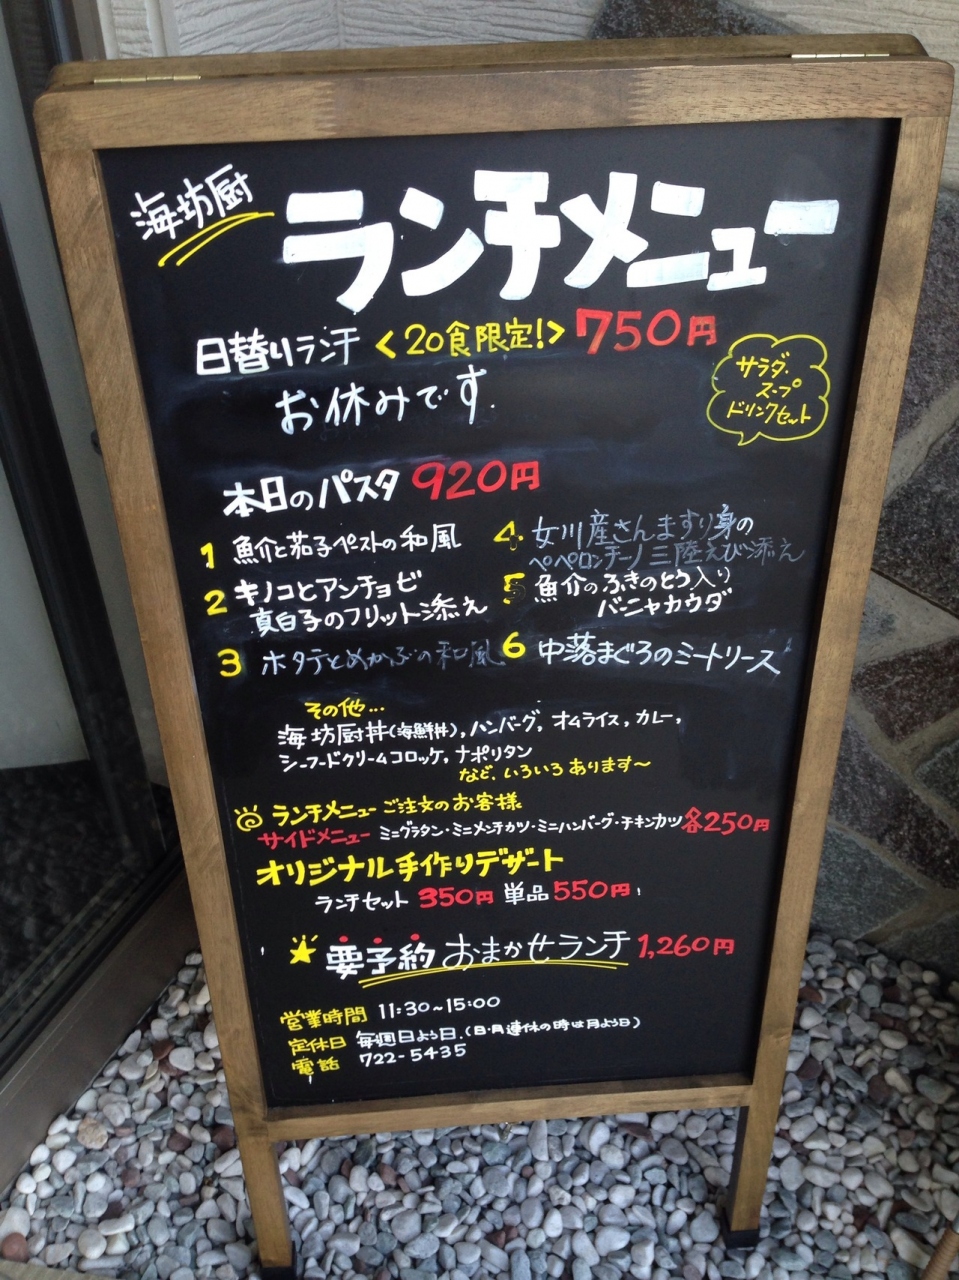 海坊厨
ランチメニュー
日替りランチ <20食限定!> 750円
お休みです.
サラダ.
スープ
ドリンクセット
本日のパスタ 920円
1 魚介と茄子ペストの和風
2 キノコとアンチョビ
真白子のフリット添え
3 ホタテとめかぶの和風
4. 女川産さんますり身の
ペペロンチーノ 三陸えび添え
5 魚介のふきのとう入り
バーニャカウダ
6 中落まぐろのミートソース
その他...
海坊厨丼(海鮮丼), ハンバーグ, オムライス, カレー,
シーフードクリームコロッケ, ナポリタン
など, いろいろあります〜
ランチメニューご注文のお客様
サイドメニュー ミニグラタン・ミニメンチカツ・ミニハンバーグ・チキンカツ 各250円
オリジナル手作りデザート
ランチセット 350円 単品 550円
要予約 おまかせランチ 1,260円
営業時間 11:30~15:00
定休日 毎週日よう日.(日・月連休の時は月よう日)
電話 722-5435